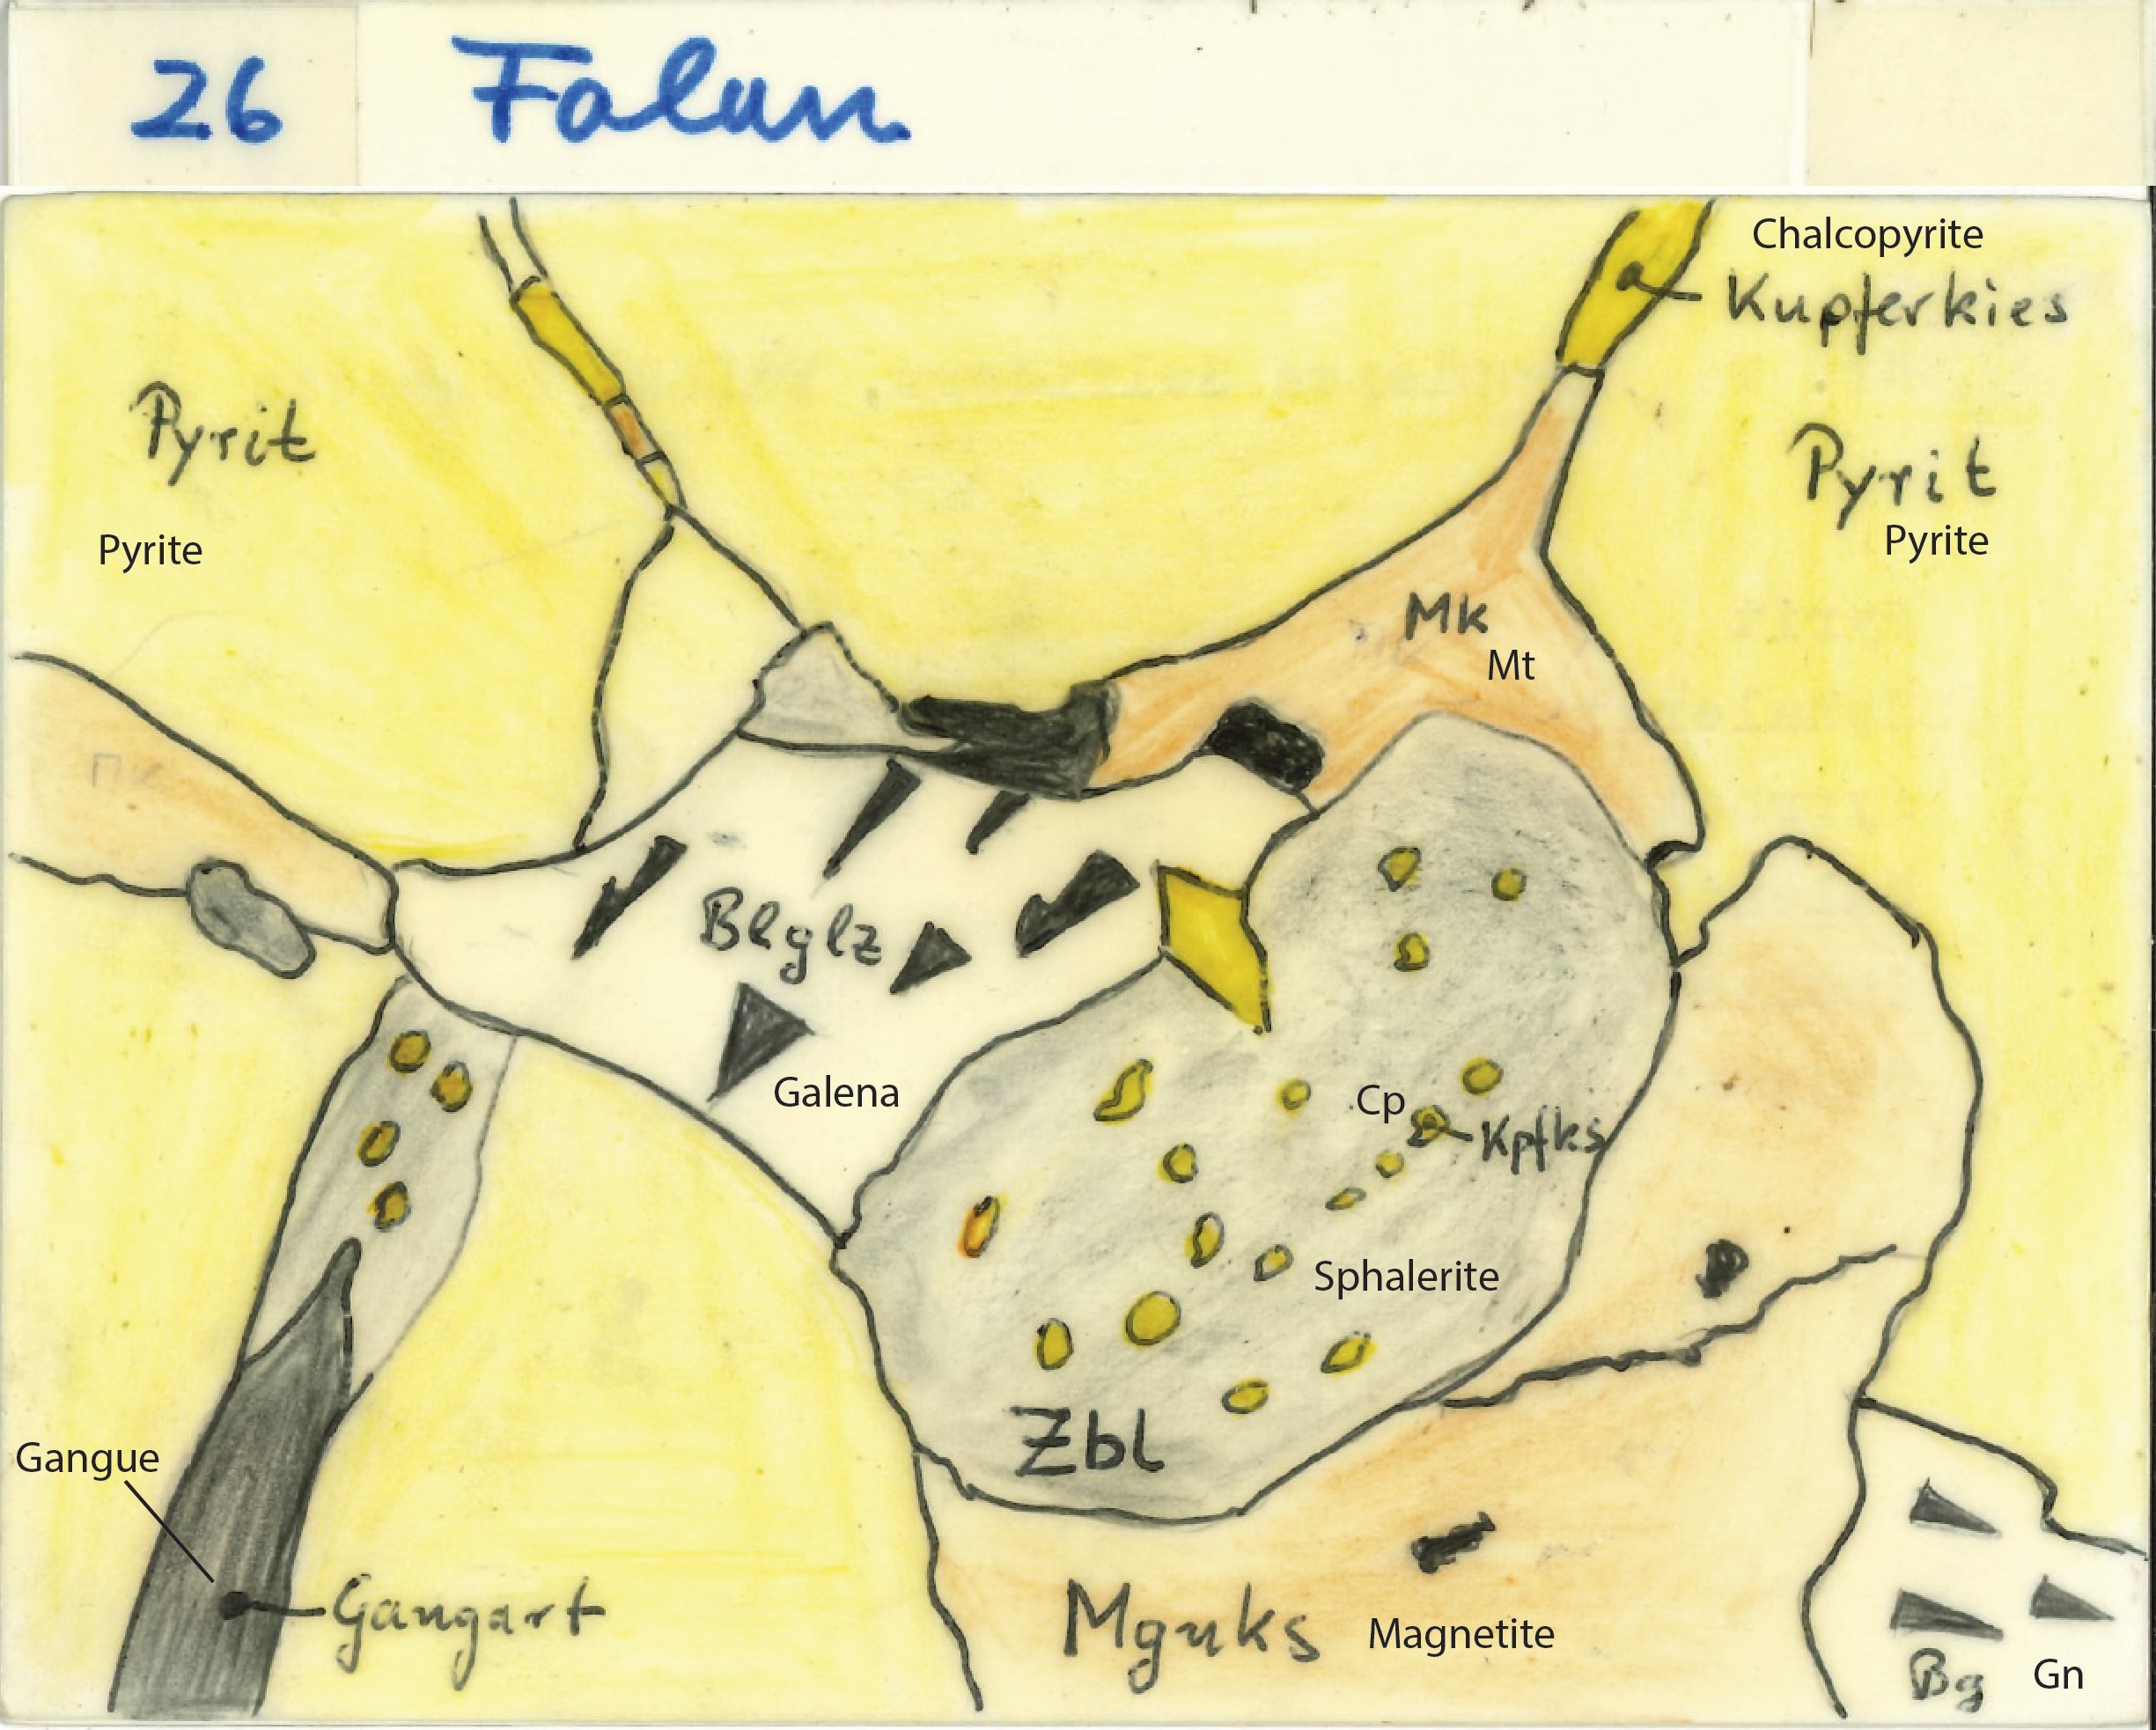 26 Falun
Chalcopyrite
Kupferkies
Pyrit
Pyrit
Pyrite
Pyrite
Mk
Mt
Mk
Blglz
Galena
Cp
Kpfks
Sphalerite
Zbl
Gangue
Gangart
Mgnks
Magnetite
Bg
Gn